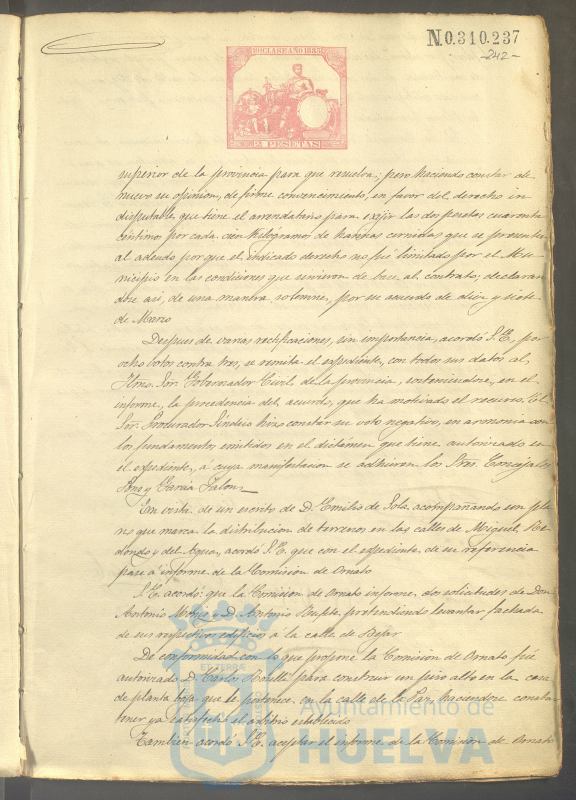 N.0.310.237
-242-
10ª CLASE AÑO 1885
2 PESETAS
superior de la provincia para que resuelva; pero haciendo constar de
nuevo su opinion, de firme convencimiento, en favor del derecho in
disputable, que tiene el arrendatario para exijir las dos pesetas cuarenta
céntimos por cada cien kilógramos de harinas cernidas que se presenten
al adeudo, porque el indicado derecho no fué limitado por el Mu
nicipio en las condiciones que sirvieron de base al contrato; declaran
dose asi, de una manera solemne, por su acuerdo de diez y siete
de Marzo
Despues de varias rectificaciones, sin importancia, acordó S.E., por
ocho votos contra tres, se remita el espediente, con todos sus datos al
Ilmo. Sor. Gobernador Civil de la provincia, sosteniendose, en el
informe, la procedencia del acuerdo, que ha motivado el recurso. El
Sor. Procurador Síndico hizo constar su voto negativo, en armonia con
los fundamentos emitidos en el dictámen que tiene autorizado en
el espediente, á cuya manifestacion se adhieren los Sres. Concejales
y Garcia
En vista de un escrito de D. Emilio de Sola, acompañando un pla
no que marca la distribucion de terrenos en las calles de Miguel Re
dondo y del Agua, acordó S.E. que con el espediente de su referencia
pase á informe de la Comision de Ornato
S.E. acordó: que la Comision de Ornato informe, dos solicitudes de Don
Antonio y D. Antonio pretendiendo levantar fachada
de sus respectivos edificios á la calle de Bejar
De conformidad con lo que propone la Comision de Ornato fué
autorizado D. Carlos para construir un piso alto en la casa
de planta baja que le pertenece, en la calle de la Paz, haciendose constar
tener ya satisfecho el arbitrio establecido
Tambien acordó S.E. aceptar el informe de la Comision de Ornato
Ayuntamiento de
HUELVA